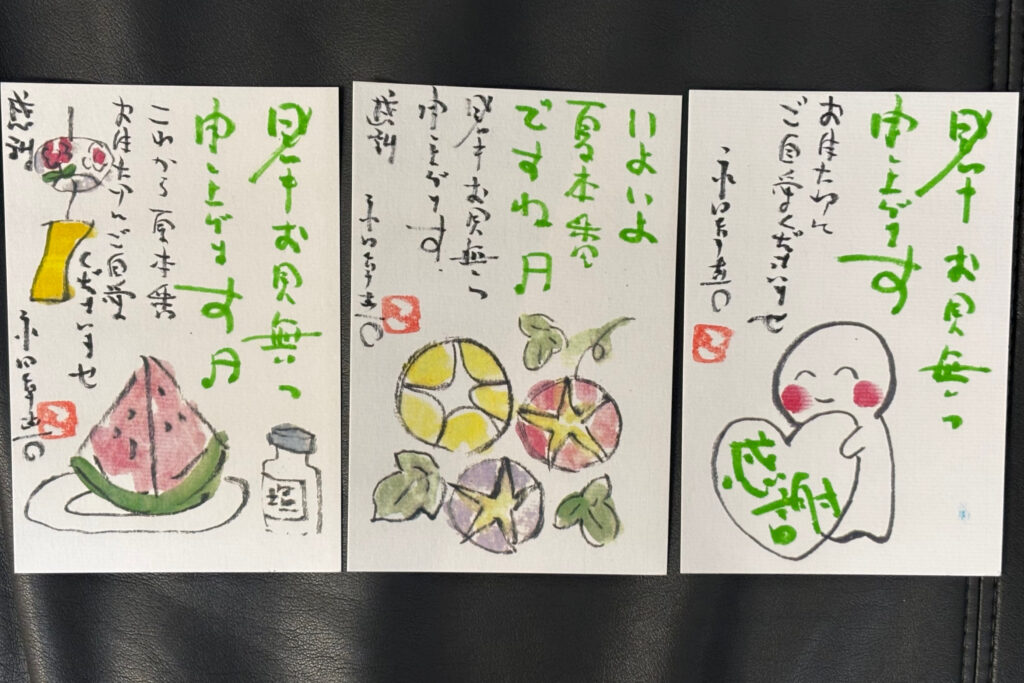 暑中お見舞い
申し上げます
これから夏本番
お身体にご自愛
くださいませ
感謝
塩
いよいよ
夏本番
ですね
暑中お見舞い
申し上げます
感謝
暑中お見舞い
申し上げます
お身体大切に
ご自愛くださいませ
感謝